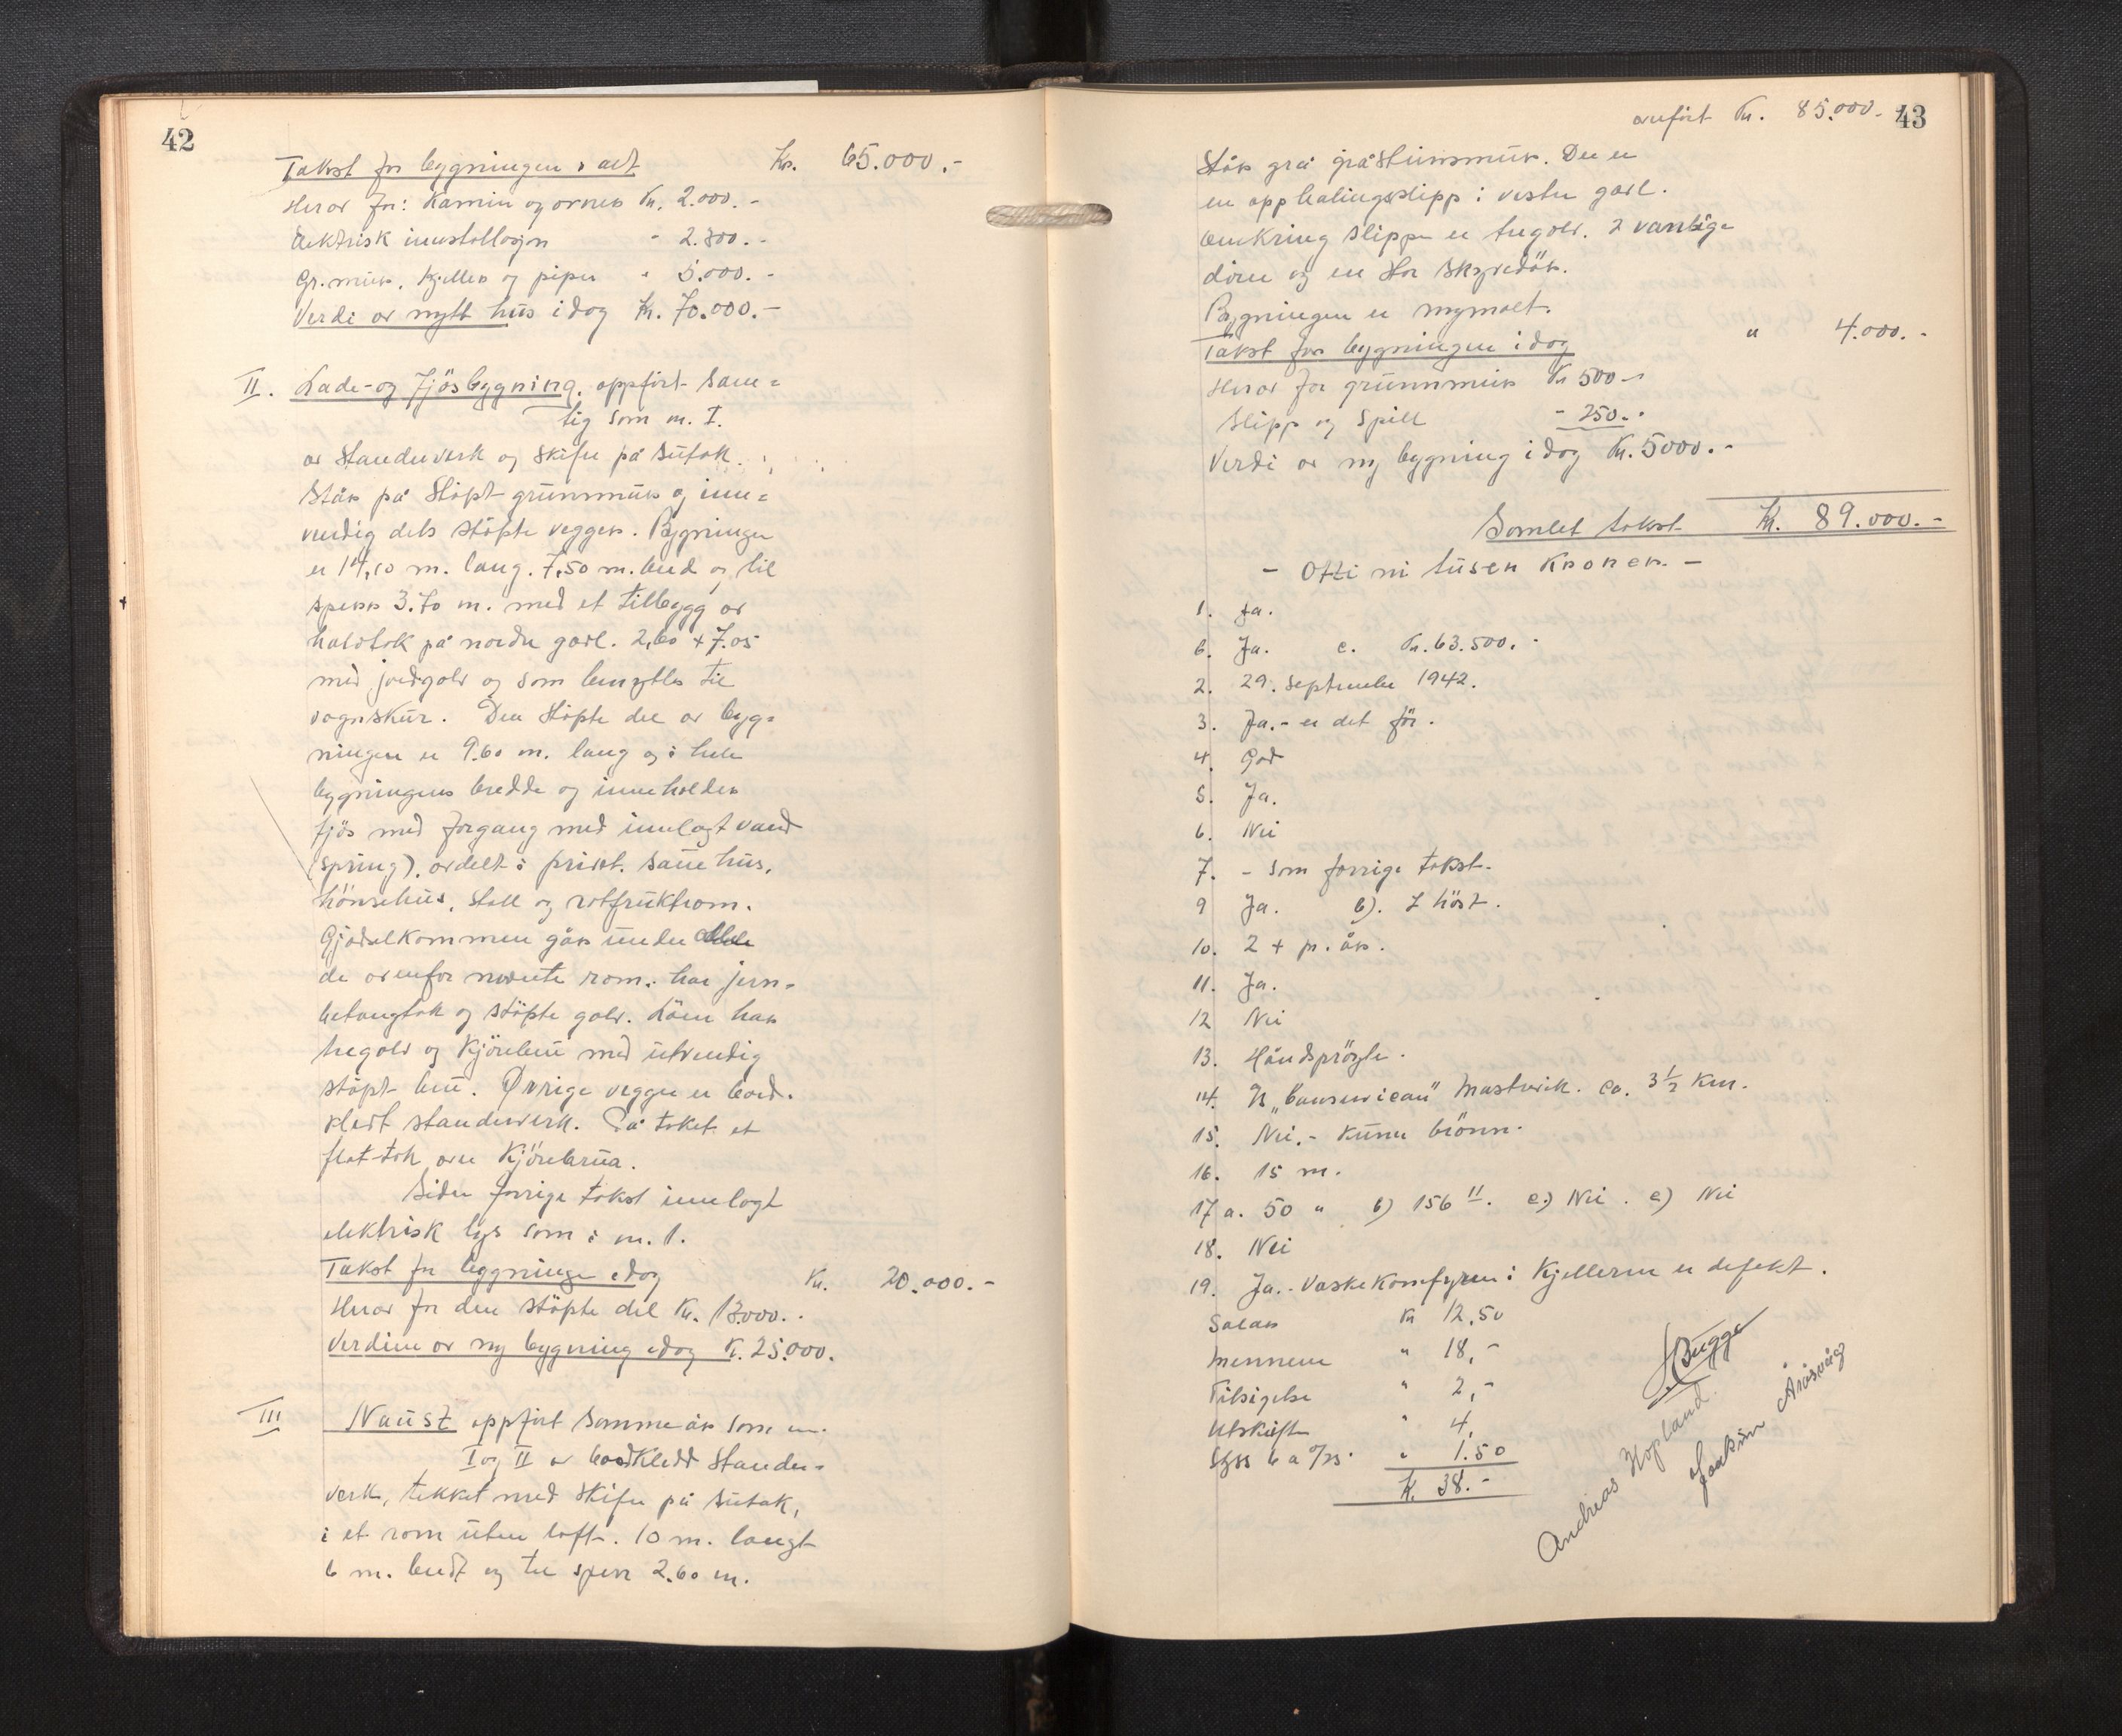 42
Takst for bygningen i alt Kr. 65.000.-
Herav for: Kamin og ovner Kr. 2.000.-
Elektrisk innstallasjon - 2.300.-
Gr.mur, Kjeller og piper " 5.000.-
Verdi av nytt hus i dag Kr. 70.000.-
II. Lade- og Fjösbygning, oppfört sam=
tig som m. I.
av Standerverk og Skifer på sutak.
Står på Stöpt grunnmur og inn=
vendig dels stöpte vegger. Bygningen
er 14,10 m. lang. 7,50 m. bred og til
sperr 3.70 m. med et tilbygg av
halvtak på nordre gavl. 2,60 + 7.05
med jordgolv og som benyttes til
vognskur. Den Stöpte del av byg=
ningen er 9.60 m. lang og i hele
bygningens bredde og inneholder
fjös med forgang med innlagt vand
(spring), avdelt i privet. Sauehus,
hönsehus, stall og rotfruktrom.
Gjödselkommen går under
de ovenfor nevnte rom. har jern-
betongtak og stöpte golv. Löen har
tregolv og Kjörebru med utvendig
stöpt bru. Övrige vegger er bord-
kledt standerverk. På taket et
flat-tak over Kjörebrua.
Siden forrige takst innlagt
elektrisk lys som i m. 1.
Takst for bygninge idag Kr. 20.000.-
Herav for den stöpte del Kr. 13.000.-
Verdien av ny bygning idag K. 25.000.
III Naust oppfört samme år som m.
I og II av bordkledd Stander-
verk, tekket med Skifer på sutak,
i et rom uten loft. 10 m. langt
6 m. bredt og til sperr 2.60 m.
overfört Kr. 85.000.- 43
Står på gråsteinsmur. Der er
en opphalingsslipp i vestre gavl.
omkring slippen er tregolv. 2 vanlige
dörer og en stor Skyvedör.
Bygningen er nymalt.
Takst for bygningen i dag " 4.000.-
Herav for grunnmur Kr 500.-
Slipp og Spill - 250.-
Verdi av ny bygning i dag Kr. 5000.-
Samlet takst Kr. 89.000.-
- Otti ni tusen Kroner. -
1. Ja.
b. Ja. c. Kr. 63.500.-
2. 29. September 1942.
3. Ja. - er det för.
4. God
5. Ja.
6. Nei
7. - Som forrige takst.
9 Ja. b). 1 höst.
10. 2 + pr. år.
11. Ja.
12 Nei
13. Håndspröyte.
14. Mastrevik. ca. 3½ Km.
15. Nei. - Kunn brönn.
16. 15 m.
17 a. 50 " b) 156 ". c) Nei. e) Nei
18. Nei
19. Ja. - Vaskekomfyren i Kjelleren er defekt.
Salær Kr 12,50
Mennene " 18,-
Tilsigelse " 2,-
Utskift " 4,
Skyss 6 a 0/25 " 1.50
K. 38.-
Bugge
Andreas Hopland
Joakim Aråsvåg